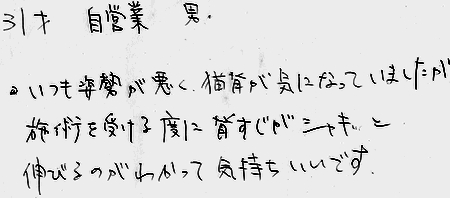 31才 自営業 男.
○いつも姿勢が悪く、猫背が気になっていましたが
施術を受ける度に背すじがシャキッと
伸びるのがわかって気持ちいいです。